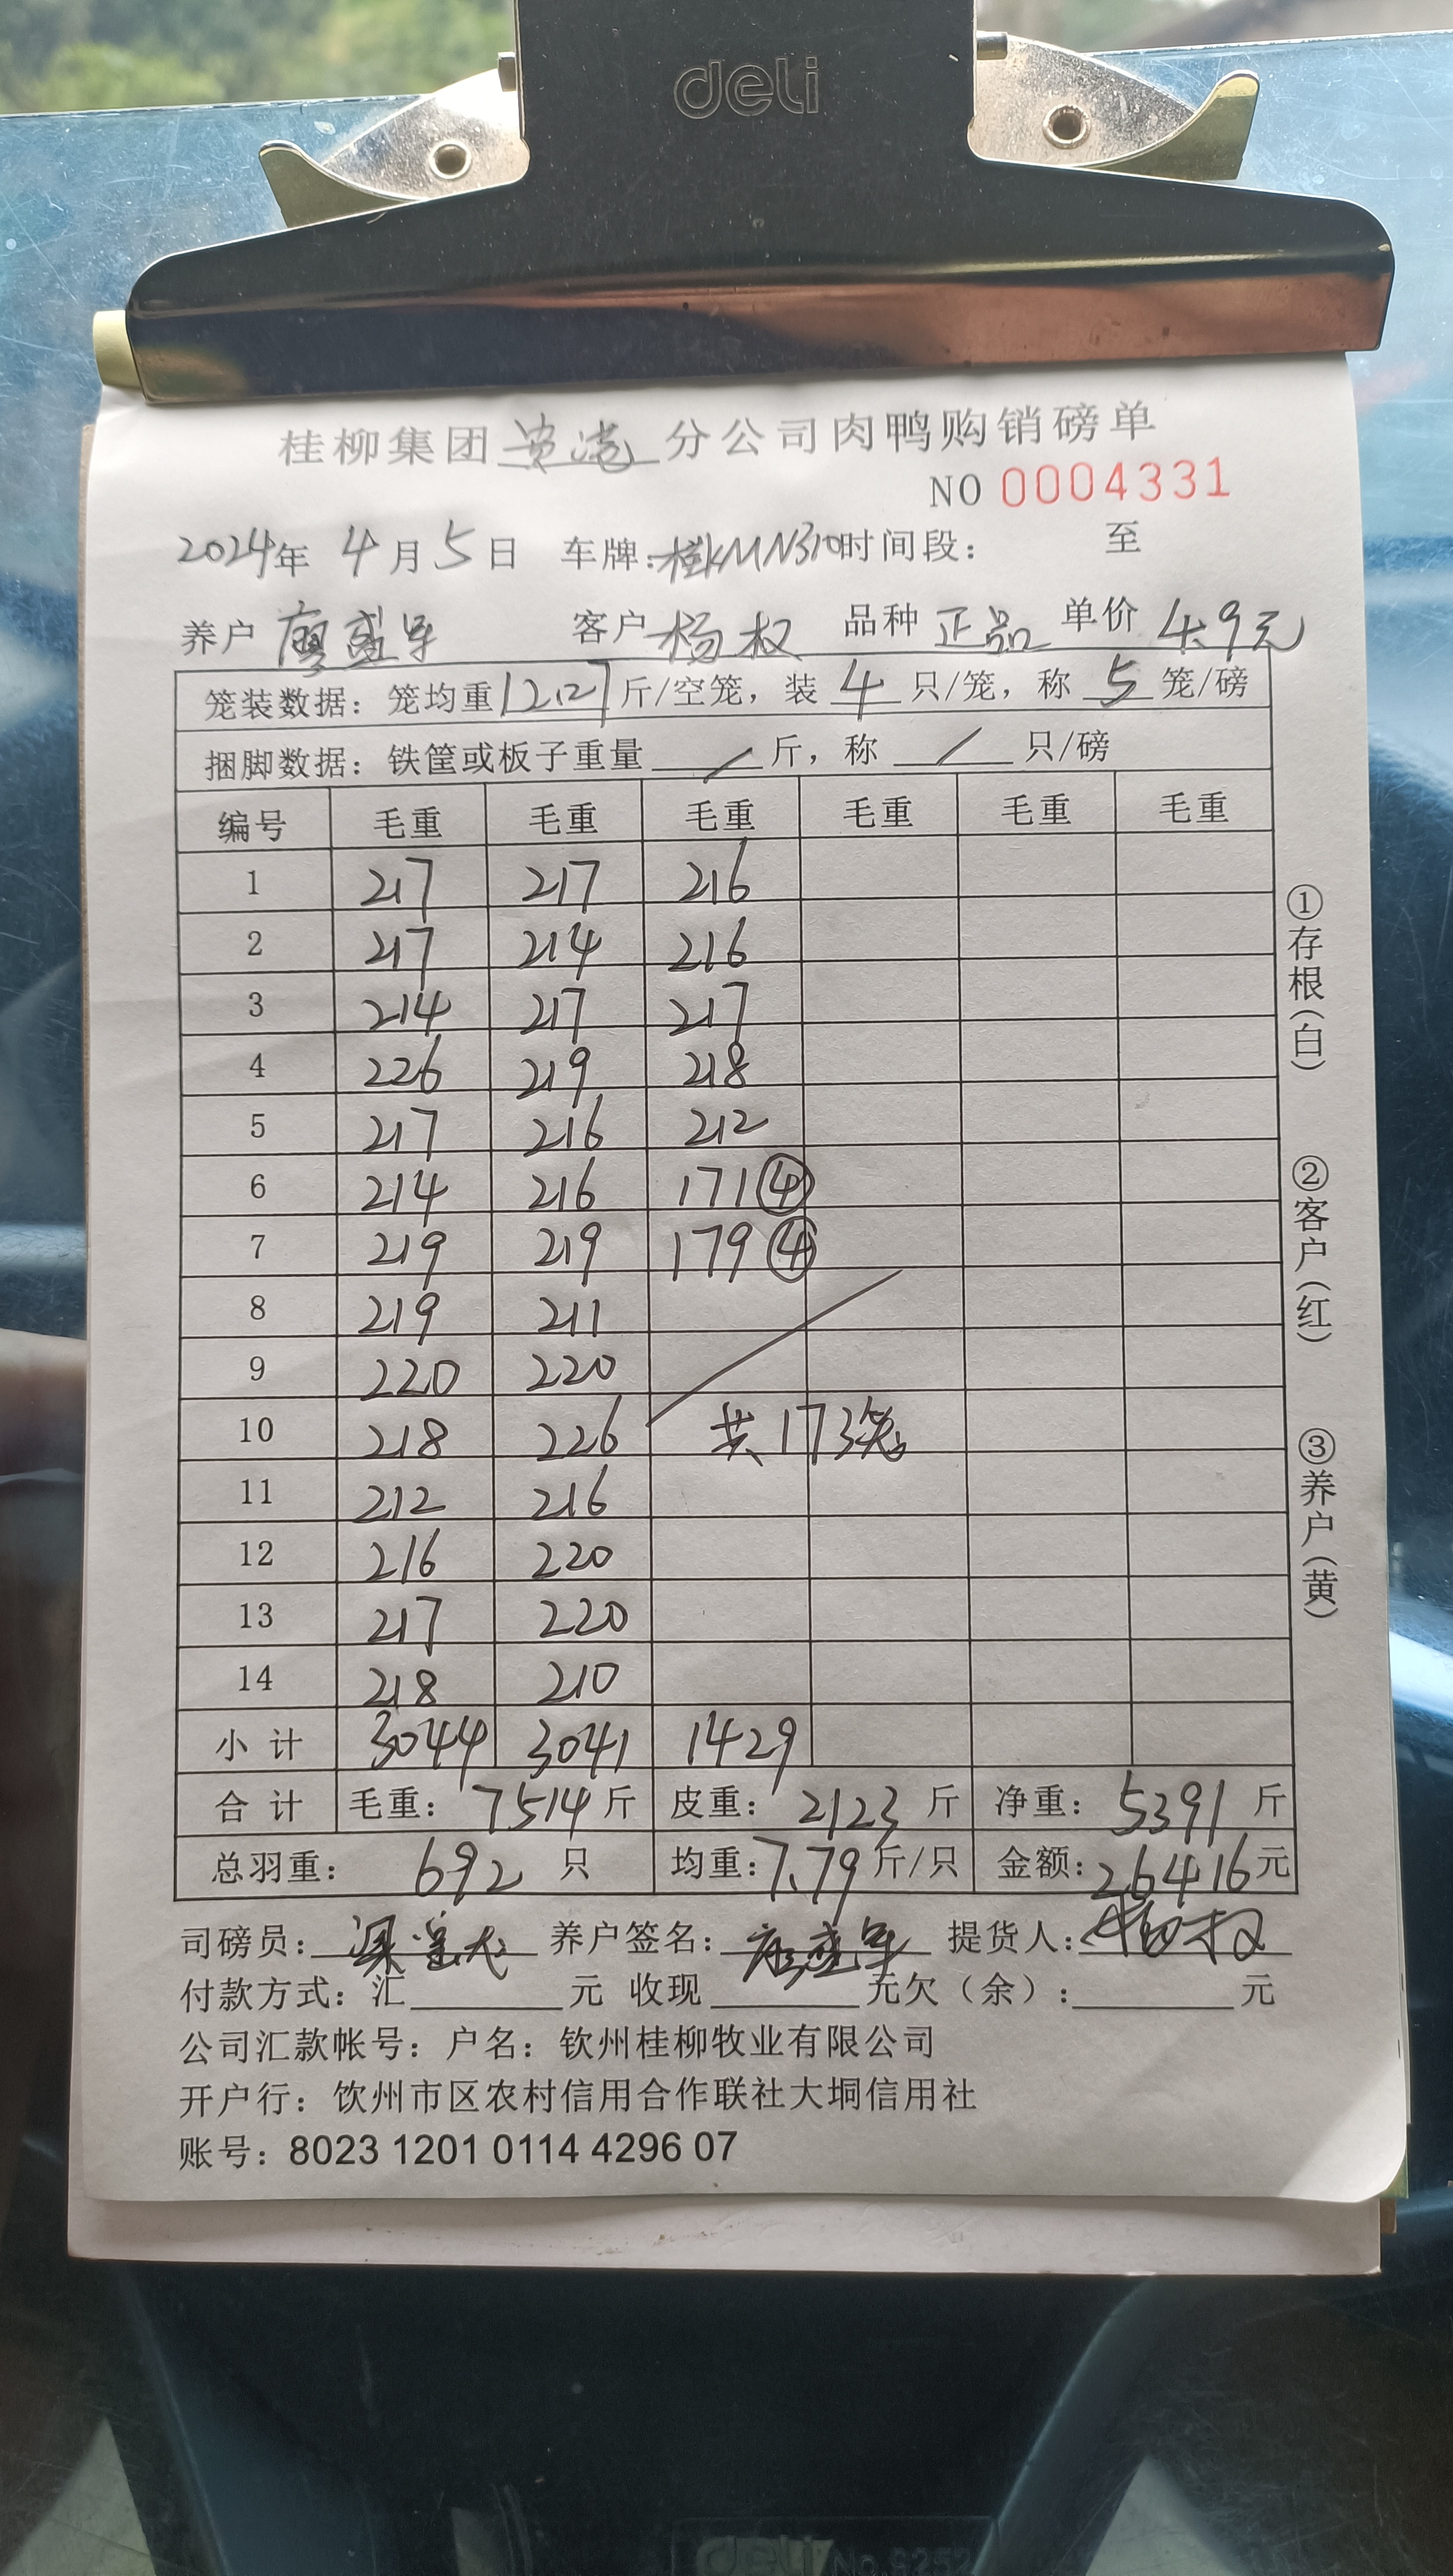 deli
桂柳集团贵港分公司肉鸭购销磅单
NO 0004331
2024年 4月5日 车牌:桂KMN310时间段: 至
养户 廖盛军 客户 杨权 品种 正品 单价 4.9元
笼装数据: 笼均重12.27斤/空笼, 装 4 只/笼, 称 5 笼/磅
捆脚数据: 铁筐或板子重量 / 斤, 称 / 只/磅
编号 毛重 毛重 毛重 毛重 毛重 毛重
1 217 217 216
2 217 214 216
3 214 217 217
4 226 219 218
5 217 216 212
6 214 216 171④
7 219 219 179④
8 219 211
9 220 220
10 218 226 共173笼
11 212 216
12 216 220
13 217 220
14 218 210
小计 3044 3041 1429
合计 毛重: 7514斤 皮重: 2123斤 净重: 5391斤
总羽重: 692 只 均重: 7.79斤/只 金额: 26416元
司磅员: 养户签名: 廖盛军 提货人: 杨权
付款方式: 汇 元 收现 元欠(余): 元
公司汇款帐号: 户名: 钦州桂柳牧业有限公司
开户行: 饮州市区农村信用合作联社大垌信用社
账号: 8023 1201 0114 4296 07
①存根(白)
②客户(红)
③养户(黄)
deli No.9252